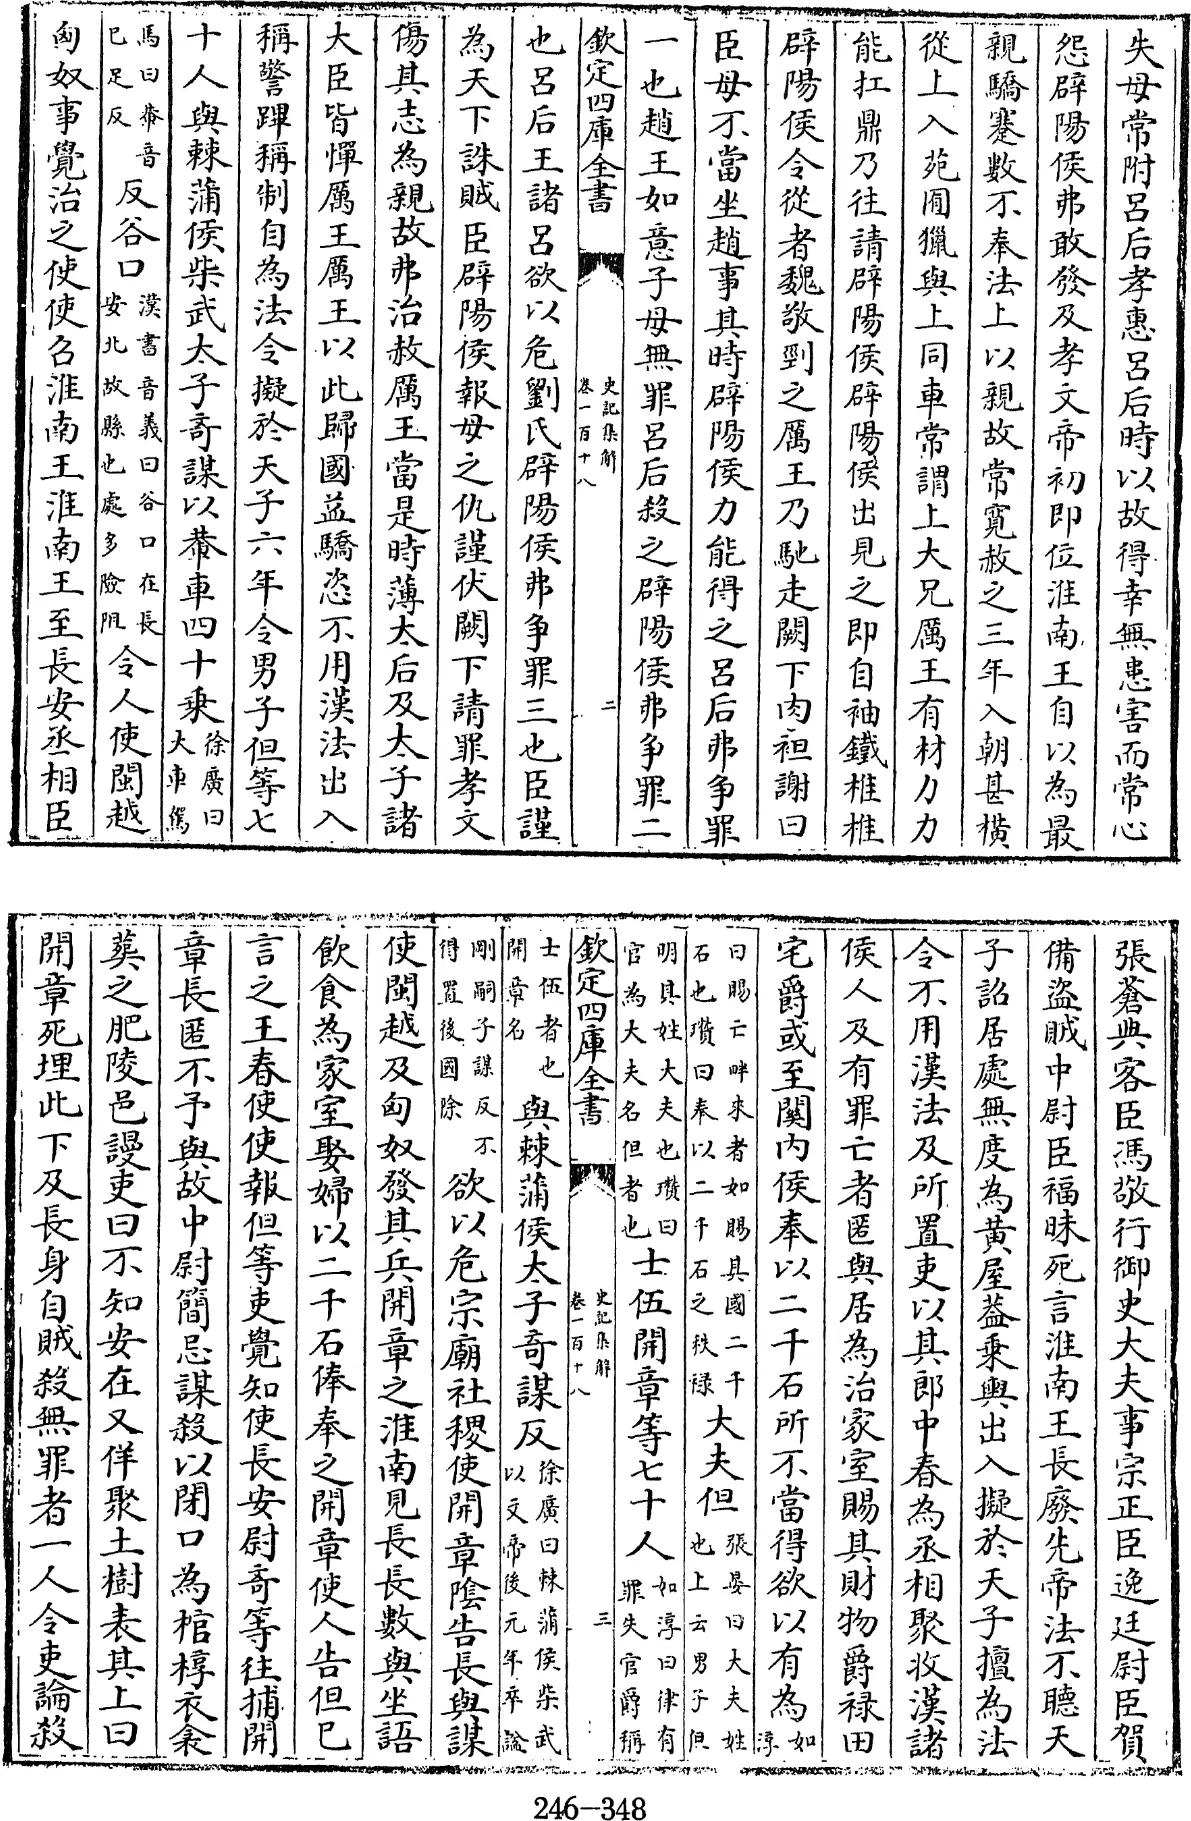 失母常附呂后孝惠呂后時以故得幸無患害而常心
怨辟陽侯弗敢發及孝文帝初即位淮南王自以為最
親驕蹇數不奉法上以親故常寛赦之三年入朝甚橫
從上入苑囿獵與上同車常謂上大兄厲王有材力力
能扛鼎乃往請辟陽侯辟陽侯出見之即自袖鐵椎椎
辟陽侯令從者魏敬剄之厲王乃馳走闕下肉袒謝曰
臣母不當坐趙事其時辟陽侯力能得之呂后弗争罪
一也趙王如意子母無罪呂后殺之辟陽侯弗争罪二
欽定四庫全書 史記集解 卷一百十八 二
也呂后王諸呂欲以危劉氏辟陽侯弗争罪三也臣謹
為天下誅賊臣辟陽侯報母之仇謹伏闕下請罪孝文
傷其志為親故弗治赦厲王當是時薄太后及太子諸
大臣皆憚厲王厲王以此歸國益驕恣不用漢法出入
稱警蹕稱制自為法令擬於天子六年令男子但等七
十人與棘蒲侯柴武太子竒謀以輂車四十乗徐廣曰大車駕
馬曰輂音己足反反谷口漢書音義曰谷口在長安北故縣也處多險阻令人使閩越
匈奴事覺治之使使召淮南王淮南王至長安丞相臣
張蒼典客臣馮敬行御史大夫事宗正臣逸廷尉臣賀
備盜賊中尉臣福昧死言淮南王長廢先帝法不聽天
子詔居處無度為黃屋葢乗輿出入擬於天子擅為法
令不用漢法及所置吏以其郎中春為丞相聚收漢諸
侯人及有罪亡者匿與居為治家室賜其財物爵禄田
宅爵或至關内侯奉以二千石所不當得欲以有為如淳
曰賜亡畔來者如賜其國二千石也瓚曰奉以二千石之秩禄大夫但張晏曰大夫姓也上云男子但
明其姓大夫也瓚曰官為大夫名但者也士伍開章等七十人如淳曰律有罪失官爵稱
欽定四庫全書 史記集解 卷一百十八 三
士伍者也開章名與棘蒲侯太子奇謀反徐廣曰棘蒲侯柴武以文帝後元年卒諡
剛嗣子謀反不得置後國除欲以危宗廟社稷使開章隂告長與謀
使閩越及匈奴發其兵開章之淮南見長長數與坐語
飲食為家室娶婦以二千石俸奉之開章使人告但已
言之王春使使報但等吏覺知使長安尉竒等往捕開
章長匿不予與故中尉簡忌謀殺以閉口為棺椁衣衾
葬之肥陵邑謾吏曰不知安在又佯聚土樹表其上曰
開章死埋此下及長身自賊殺無罪者一人令吏論殺
246-348